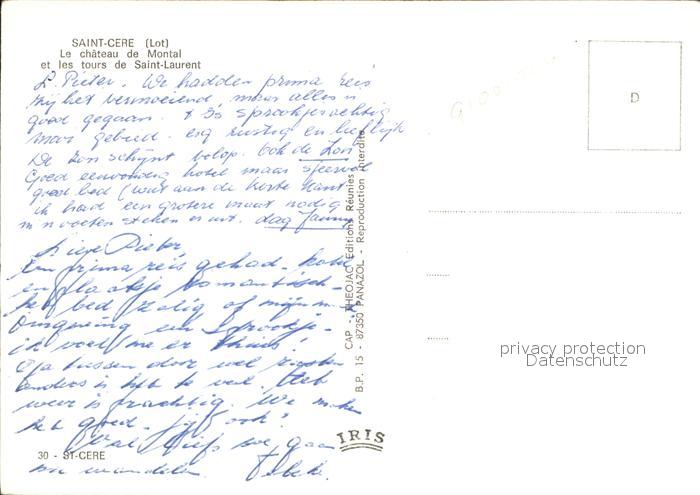 SAINT-CERE (Lot)
Le château de Montal
et les tours de Saint-Laurent
L. Pieter. We hadden prima reis
zij het vermoeiend, maar alles is
goed gegaan. t Is sprookjesachtig
mooi gebied. erg rustig en lieflijk
De zon schijnt volop. Ook de Lot.
Goed eenvoudig hotel maar sfeervol
goed bed (wat aan de korte kant
ik had een grotere maat nodig
m'n voeten steken er uit. dag
Lieve Pieter,
Een prima reis gehad. hotel
en plaatsje romantisch
het bed zalig of mijn
omgeving een sprookje.
ik voel me er thuis!
tussen door wel rusten
anders is het te veel. Het
weer is prachtig. We maken
het goed. jij ook?
lief we gaan
wandelen.
30 - ST-CERE
CAP - THEOJAC Editions Réunies
B.P. 15 - 87350 PANAZOL - Reproduction Interdite
IRIS
D
privacy protection
Datenschutz